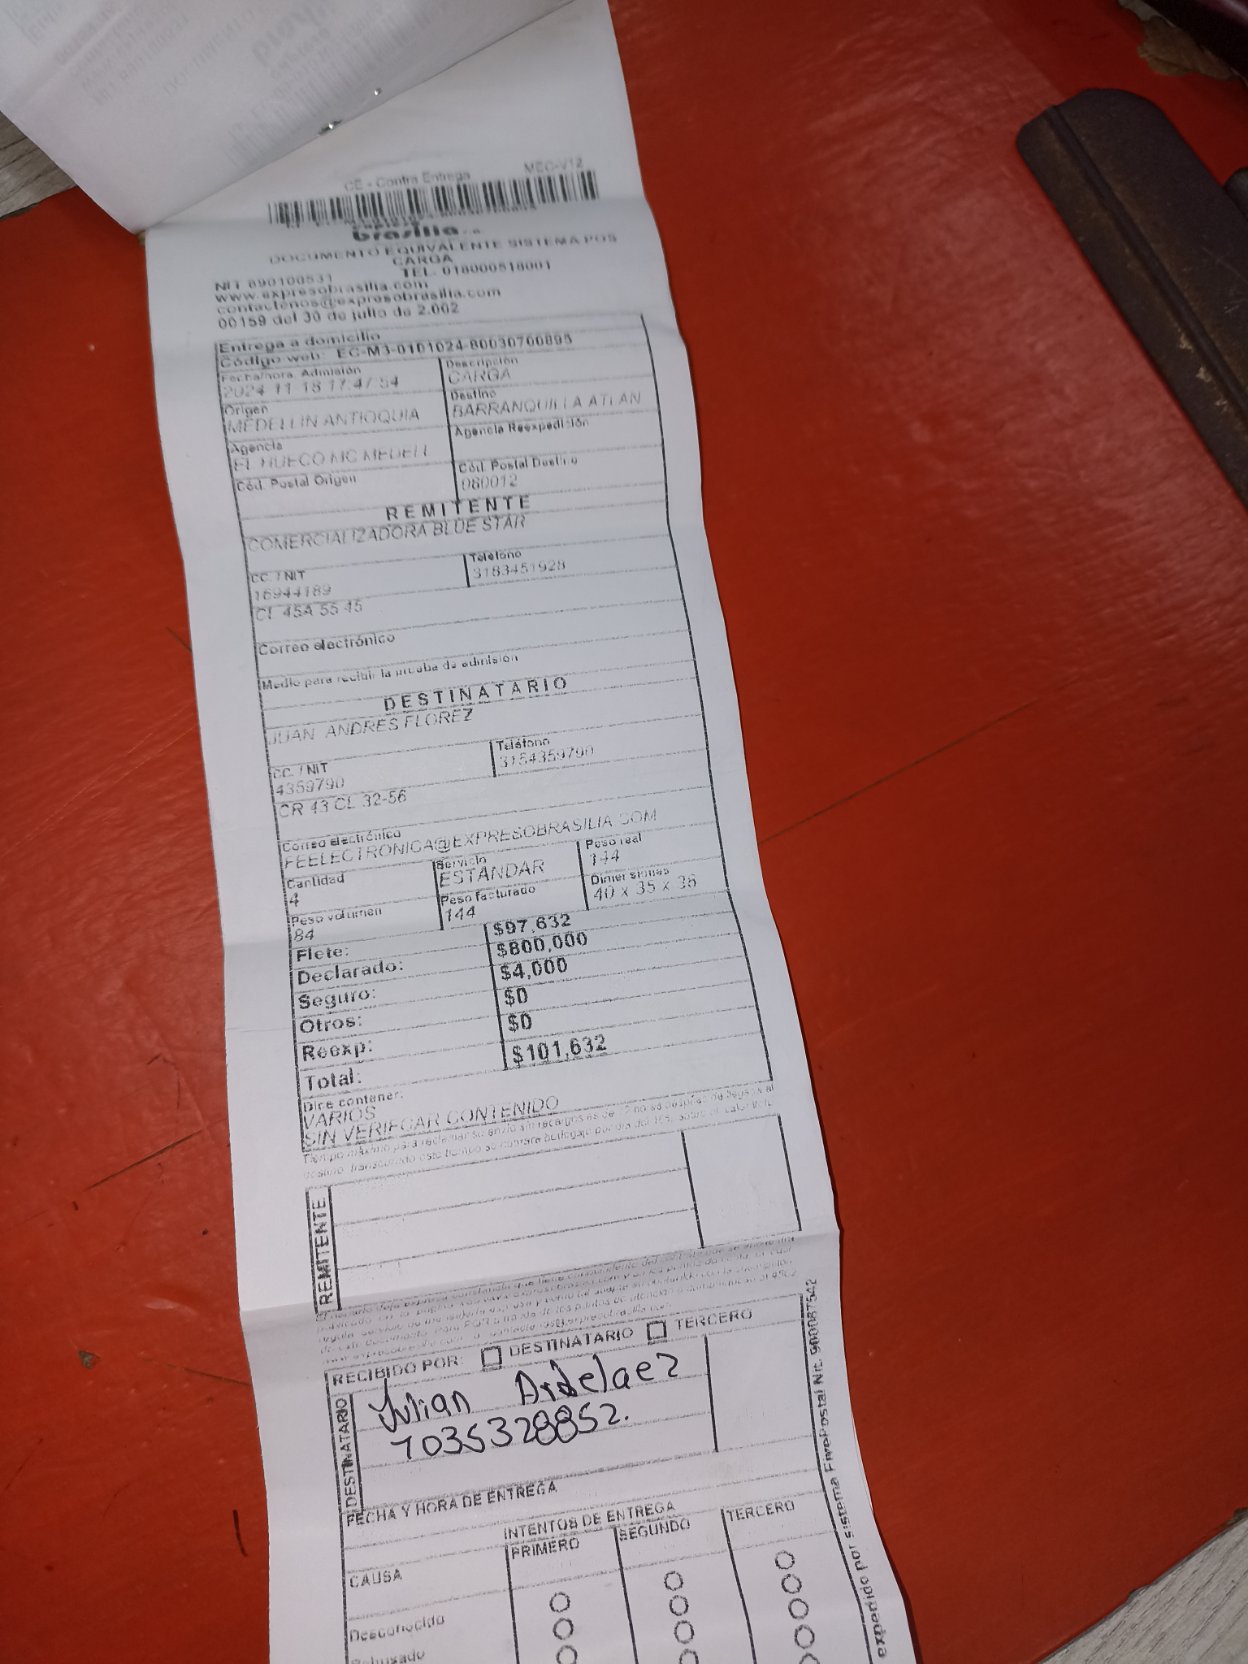 CE - Contra Entrega MEC-V12
expreso
brasilia
DOCUMENTO EQUIVALENTE SISTEMA POS
CARGA
NIT 890100531 TEL. 018000518001
www.expresobrasilia.com
contactenos@expresobrasilia.com
00159 del 30 de julio de 2.002
Entrega a domicilio
Código web: EC-M3-0101024-80030700895
Fecha/hora Admisión Descripción
2024-11-18 17:47:54 CARGA
Origen Destino
MEDELLIN ANTIOQUIA BARRANQUILLA ATLAN
Agencia Agencia Reexpedición
EL HUECO MC MEDELL
Cód. Postal Origen Cód. Postal Destino
080012
REMITENTE
COMERCIALIZADORA BLUE STAR
CC. / NIT Teléfono
16944189 3183451928
CL 45A 55 45
Correo electrónico
Medio para recibir la prueba de admisión
DESTINATARIO
JUAN ANDRES FLOREZ
CC. / NIT Teléfono
4359790 3154359790
CR 43 CL 32-56
Correo electrónico
FEELECTRONICA@EXPRESOBRASILIA.COM
Cantidad Servicio Peso real
4 ESTÁNDAR 144
Peso volumen Peso facturado Dimensiones
84 144 40 x 35 x 36
Flete: $97,632
Declarado: $800,000
Seguro: $4,000
Otros: $0
Reexp: $0
Total: $101,632
Dice contener:
VARIOS
SIN VERIFICAR CONTENIDO
REMITENTE
RECIBIDO POR: DESTINATARIO TERCERO
DESTINATARIO
Julian Ardelaez
1035328852.
FECHA Y HORA DE ENTREGA
INTENTOS DE ENTREGA
CAUSA PRIMERO SEGUNDO TERCERO
Desconocido
Rehusado
expedido por sistema FivePostal Nit. 900087542